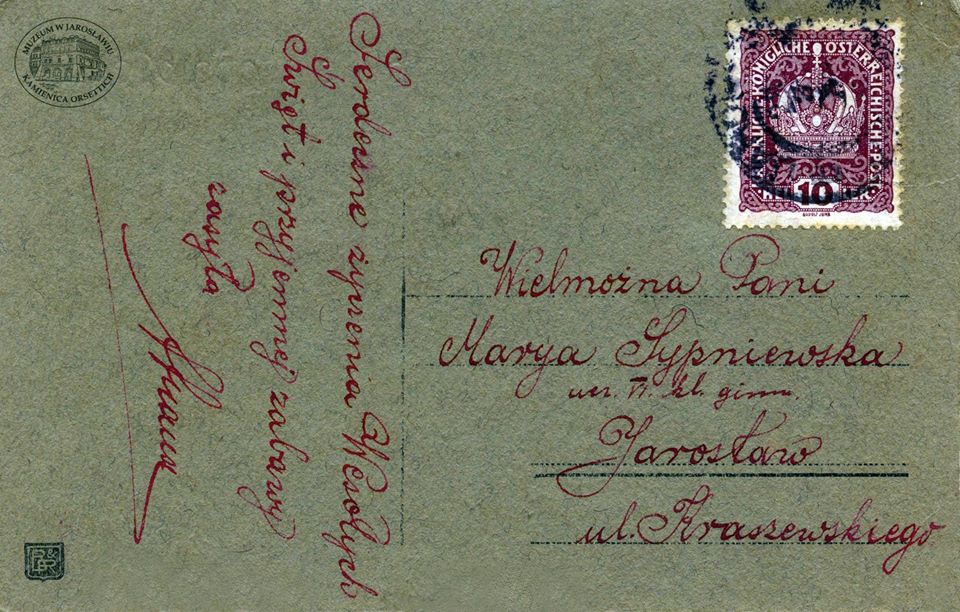 MUZEUM W JAROSŁAWIU
KAMIENICA ORSETTICH
Serdeczne życzenia Wesołych
Świąt i przyjemnej zabawy
zasyła
KAISERLICHE KÖNIGLICHE ÖSTERREICHISCHE POST
10
HELLER
Wielmożna Pani
Marya Sypniewska
ucz. VI. kl. gimn.
Jarosław
ul. Kraszewskiego